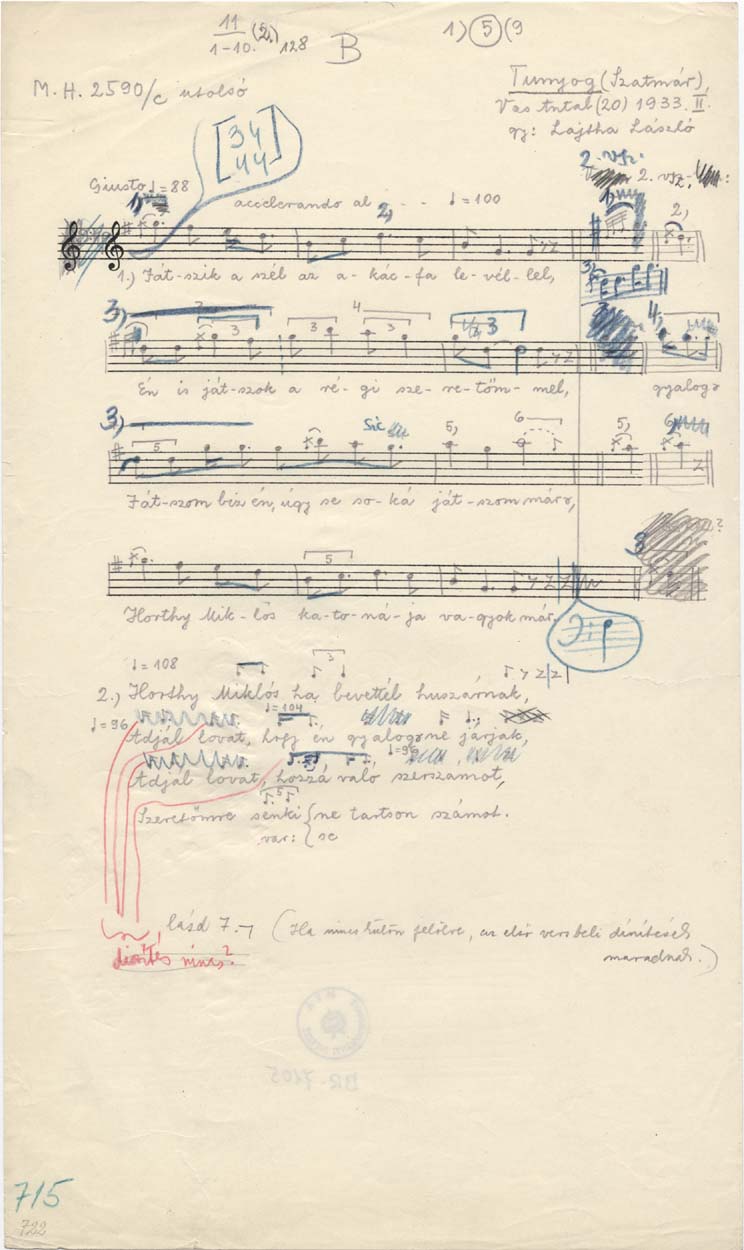 11 / 1-10. (2.) 128 B 1) 5 (9
M. H. 2590/c utolsó
Tunyog (Szatmár),
Vas Antal (20) 1933. II.
gy: Lajtha László
34
44
2. vsz:
Giusto ♩= 88 accelerando al - - - ♩= 100 2. vsz.
1.) Ját-szik a szél az a-kác-fa le-vél-lel,
Én is ját-szok a ré-gi sze-re-tőm-mel, gyalog
sic
Ját-szom biz én, úgy se so-ká ját-szom már,
Horthy Mik-lós ka-to-ná-ja va-gyok már.
♩= 108
2.) Horthy Miklós ha bevettél huszárnak,
♩= 96 ♩= 104
Adjál lovat, hogy én gyalog ne járjak,
♩= 96
Adjál lovat, hozzá való szerszámot,
Szeretőmre senki ne tartson számot.
var: se
, lásd 7. (Ha nincs külön jelölve, az első versbeli díszítések
maradnak.)
díszítés nincs?
BR-7105
715
722